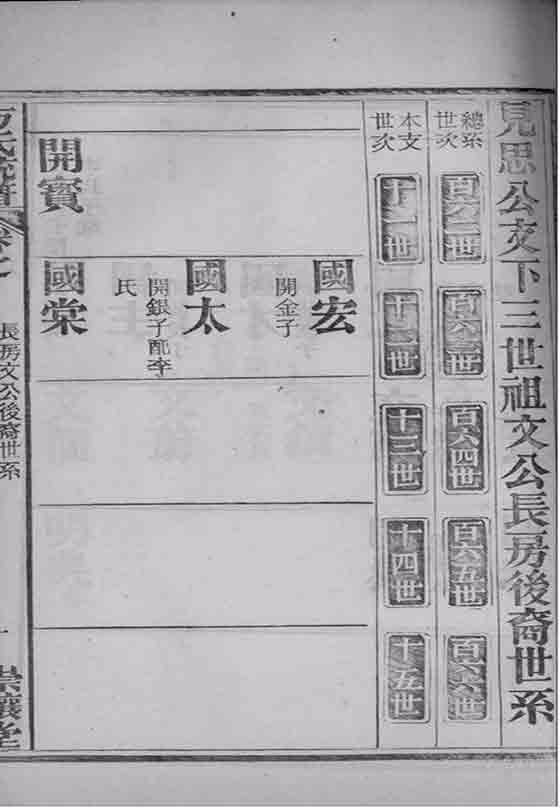 見思公支下三世祖文公長房後裔世系
總系
世次
百六二世
百六三世
百六四世
百六五世
百六六世
本支
世次
十一世
十二世
十三世
十四世
十五世
國宏
開金子
國太
開銀子配李
氏
開寶
國棠
長房文公後裔世系